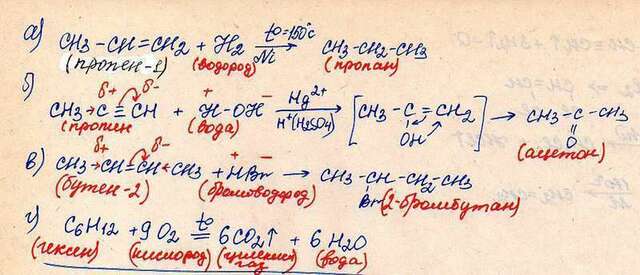 а) CH3-CH=CH2 + H2 t°=150°C Ni CH3-CH2-CH3
(пропен-1) (водород) (пропан)
б) δ+ δ- + - Hg2+
CH3→C≡CH + H-OH H+(H2SO4) [CH3-C=CH2 OH] → CH3-C-CH3 O
(пропин (вода) (ацетон)
в) δ+ δ- + -
CH3→CH=CH←CH3 + HBr → CH3-CH-CH2-CH3
(бутен-2) (бромоводород) Br (2-бромбутан)
г) C6H12 + 9O2 t° = 6CO2↑ + 6H2O
(гексен) (кислород) (углекисл. газ) (вода)